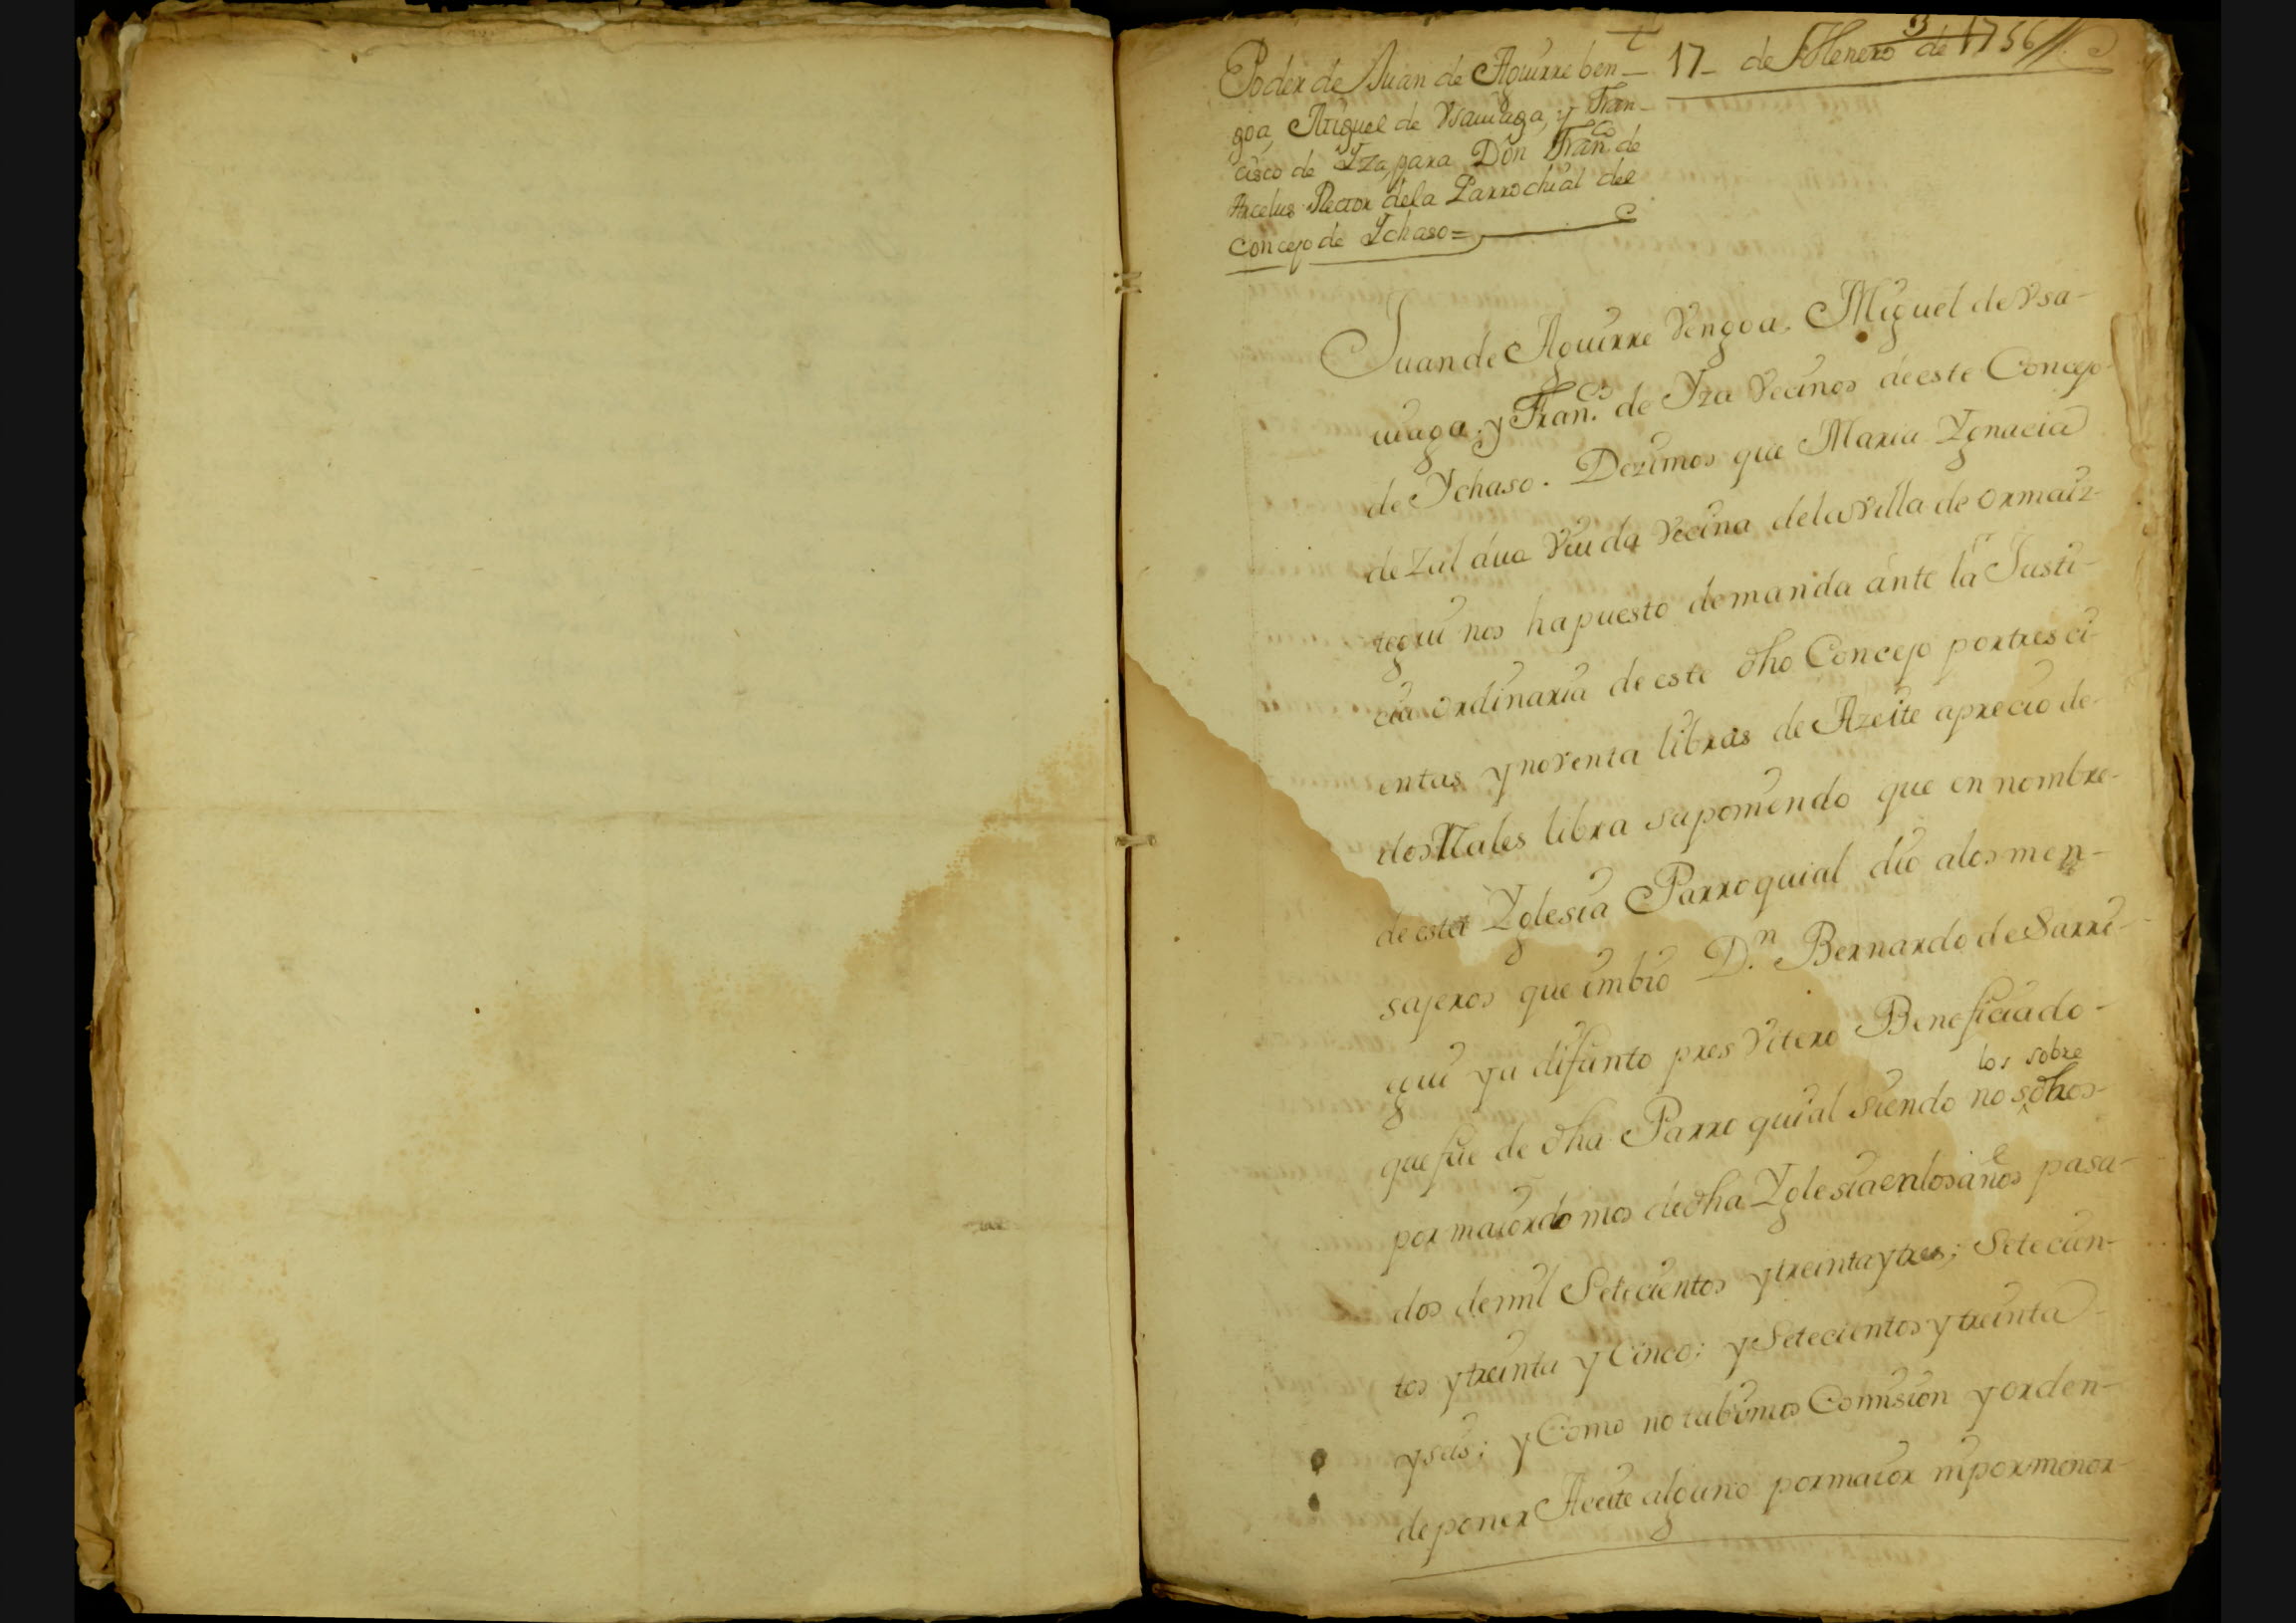 Poder de Juan de Aguirre ben-
goa, Miguel de Vsauiaga, y Fran-
cisco de Yza, para Don Fran.co de
Arcelus Rector dela Parrochial del
Concejo de Ychaso=
17- de Henero de 1756
Juan de Aguirre Vengoa, Miguel de Vsa-
uiaga, y Fran.co de Yza Vecinos de este Concejo
de Ychaso. Dezimos que Maria Ygnacia
de Zaldua Viuda Vecina dela Villa de ormaiz-
tegui nos ha puesto demanda ante la Justi-
cia ordinaria de este dho Concejo por tres ci-
entas y noventa libras de Azeite a precio de-
dos Rales libra suponiendo que en nombre-
de esta Yglesia Parroquial dio alos men-
sajeros que imbio D.n Bernardo de Sarri-
egui ya difunto presVitero Beneficiado-
que fue de dha Parroquial siendo nos los sobre dhos-
por maiordomos de dha Yglesia en los años pasa-
dos de mil Setecientos y treinta y tres; Setecien-
tos y treinta y Cinco; y Setecientos y treinta
y seis; y Como no tubimos Comision y orden-
de poner Aceite alguno por maior ni por menor-